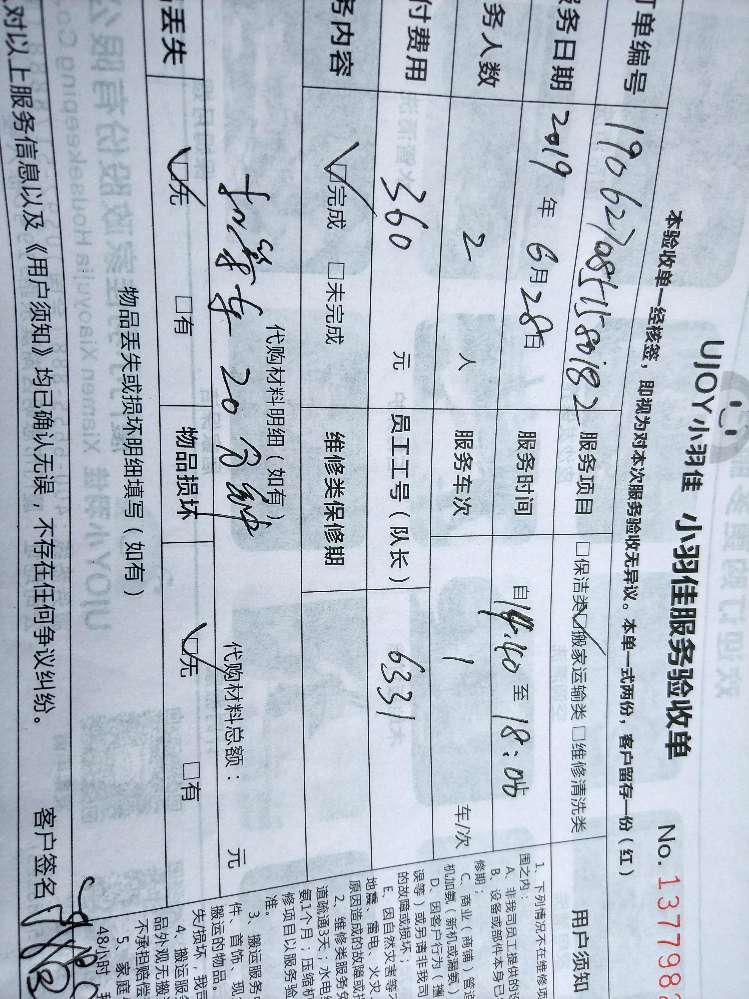 UJOY小羽佳 小羽佳服务验收单
No. 1377982
本验收单一经核签，即视为对本次服务验收无异议。本单一式两份，客户留存一份（红）
订单编号
服务项目 □保洁类 ☑搬家运输类 □维修清洗类
服务日期 2019年6月28日 服务时间 自14:40至18:06
务人数 2 人 服务车次 1 车/次
付费用 360 元 员工工号（队长） 6331
务内容 ☑完成 □未完成 维修类保修期
代购材料明细（如有） 代购材料总额： 元
20分钟
丢失 ☑无 □有 物品损坏 ☑无 □有
物品丢失或损坏明细填写（如有）
对以上服务信息以及《用户须知》均已确认无误，不存在任何争议纠纷。 客户签名
用户须知
1、下列情况不在维修项
围之内：
A、非我司员工提供的
B、设备或部件本身已
修期；
C、商业（商铺）管道
机加氨（新机或漏氨）
D、因客户行为（擅
误等）或另请非我司
的故障或损坏；
E、因自然灾害等不
地震、雷电、火灾、
原因造成的故障或损
2、维修类服务免
道疏通3天；水电维
氨1个月；压缩机
修项目以服务验
准。
3、搬运服务中
件、首饰、现
搬运的物品。
失/损坏，我司
4、搬运服务
品外观无搬
不承担赔偿
5、家庭
48小时